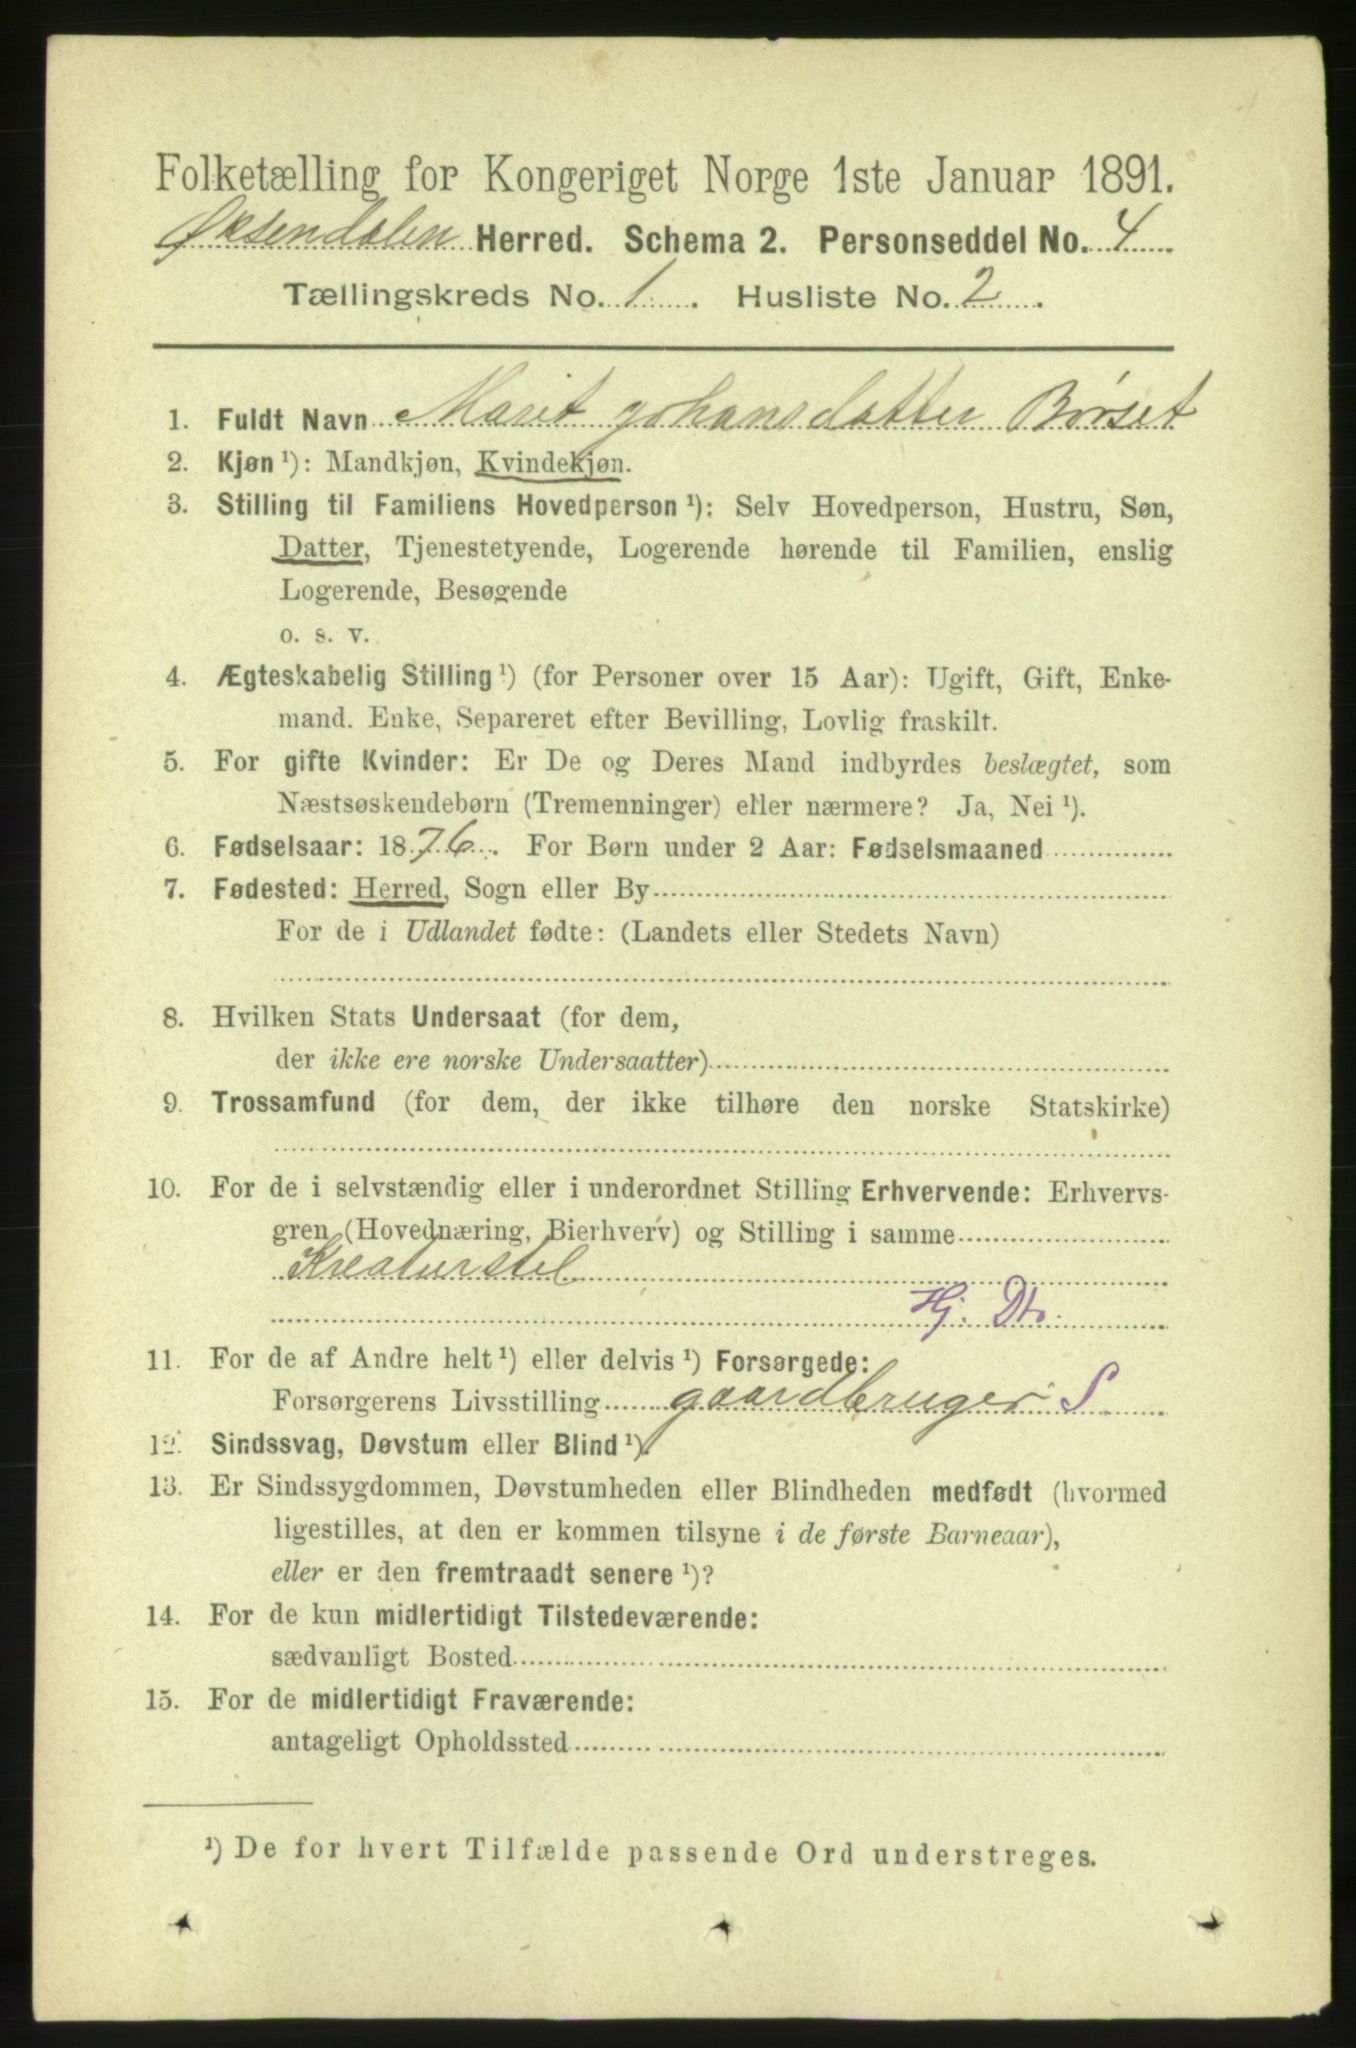 Folketælling for Kongeriget Norge 1ste Januar 1891.
Øksendalen Herred. Schema 2. Personseddel No. 4
Tællingskreds No. 1. Husliste No. 2.
1. Fuldt Navn Marit Johansdatter Børset
2. Kjøn ¹): Mandkjøn, Kvindekjøn.
3. Stilling til Familiens Hovedperson ¹): Selv Hovedperson, Hustru, Søn,
Datter, Tjenestetyende, Logerende hørende til Familien, enslig
Logerende, Besøgende
o. s. v.
4. Ægteskabelig Stilling ¹) (for Personer over 15 Aar): Ugift, Gift, Enke-
mand. Enke, Separeret efter Bevilling, Lovlig fraskilt.
5. For gifte Kvinder: Er De og Deres Mand indbyrdes beslægtet, som
Næstsøskendebørn (Tremenninger) eller nærmere? Ja, Nei ¹).
6. Fødselsaar: 1876. For Børn under 2 Aar: Fødselsmaaned
7. Fødested: Herred, Sogn eller By
For de i Udlandet fødte: (Landets eller Stedets Navn)
8. Hvilken Stats Undersaat (for dem,
der ikke ere norske Undersaatter)
9. Trossamfund (for dem, der ikke tilhøre den norske Statskirke)
10. For de i selvstændig eller i underordnet Stilling Erhvervende: Erhvervs-
gren (Hovednæring, Bierhverv) og Stilling i samme
Kreaturstel
Hj. Dtr.
11. For de af Andre helt ¹) eller delvis ¹) Forsørgede:
Forsørgerens Livsstilling gaardbruger S.
12. Sindssvag, Døvstum eller Blind ¹).
13. Er Sindssygdommen, Døvstumheden eller Blindheden medfødt (hvormed
ligestilles, at den er kommen tilsyne i de første Barneaar),
eller er den fremtraadt senere ¹)?
14. For de kun midlertidigt Tilstedeværende:
sædvanligt Bosted
15. For de midlertidigt Fraværende:
antageligt Opholdssted
¹) De for hvert Tilfælde passende Ord understreges.